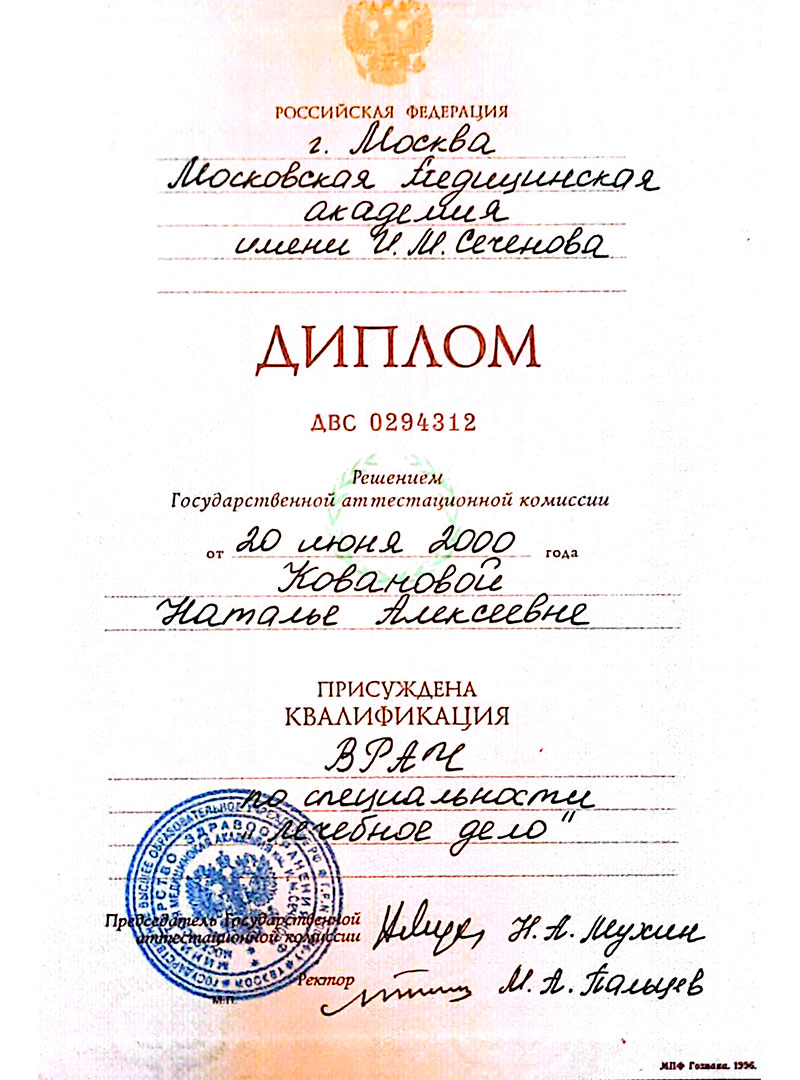 РОССИЙСКАЯ ФЕДЕРАЦИЯ
г. Москва
Московская медицинская
академия
имени И.М. Сеченова
ДИПЛОМ
ДВС 0294312
Решением
Государственной аттестационной комиссии
от 20 июня 2000 года
Ковановой
Наталье Алексеевне
ПРИСУЖДЕНА
КВАЛИФИКАЦИЯ
ВРАЧ
по специальности
"лечебное дело"
Председатель Государственной
аттестационной комиссии Н.А. Мухин
Ректор М.А. Пальцев
М.П.
МПФ Гознака. 1996.